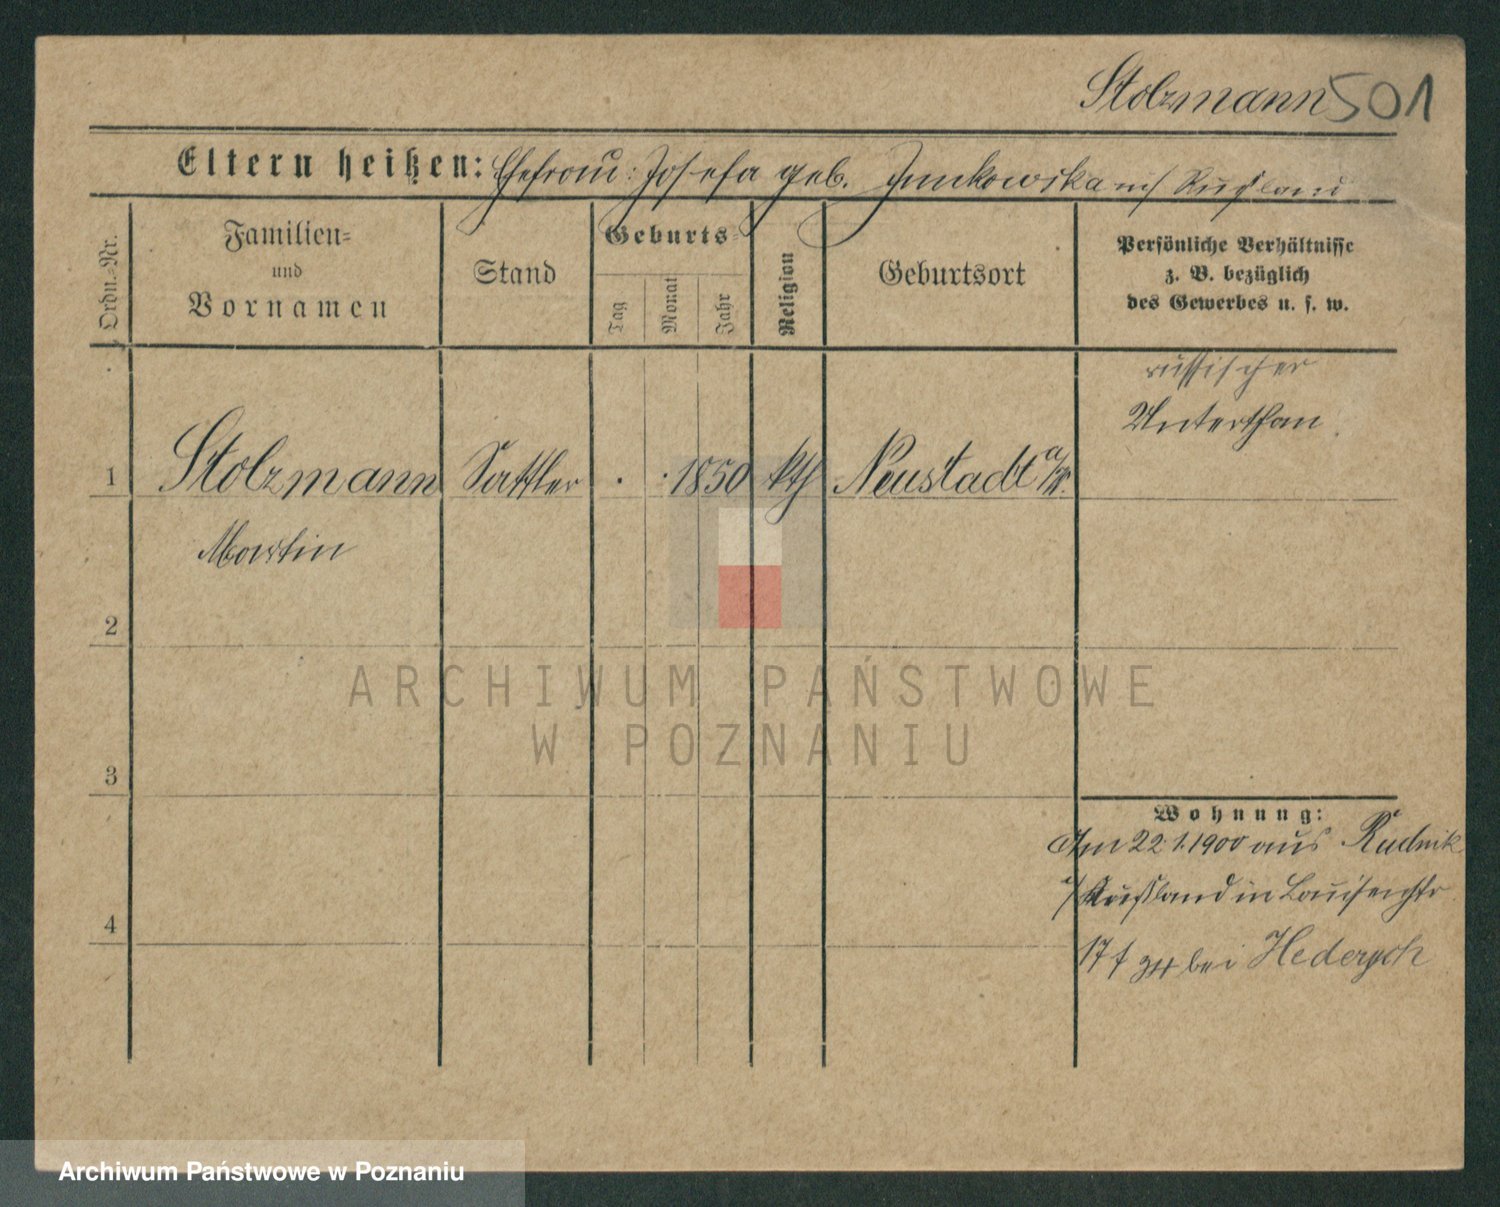 Stolzmann 501
Eltern heißen: Ehefrau: Josefa geb. Junkowska in Rußland
Ordn.-Nr.
Familien-
und
Vornamen
Stand
Geburts-
Tag
Monat
Jahr
Religion
Geburtsort
Persönliche Verhältnisse
z. B. bezüglich
des Gewerbes u. s. w.
russischer
Unterthan.
1 Stolzmann Sattler . . 1850 kth Neustadt a/W.
Martin
2
3
4
Wohnung:
Am 22.1.1900 aus Rudnik
i/ Rußland in Louisenstr
17 f bei
ARCHIWUM PAŃSTWOWE
W POZNANIU
Archiwum Państwowe w Poznaniu